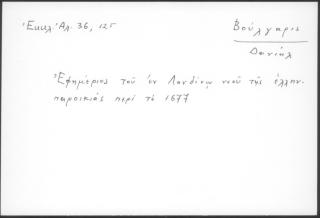 Ἐκκλ. Ἀλ. 36, 125
Βούλγαρις
Δανιὴλ
Ἐφημέριος τοῦ ἐν Λονδίνῳ ναοῦ τῆς ἑλλην.
παροικίας περὶ τὸ 1677